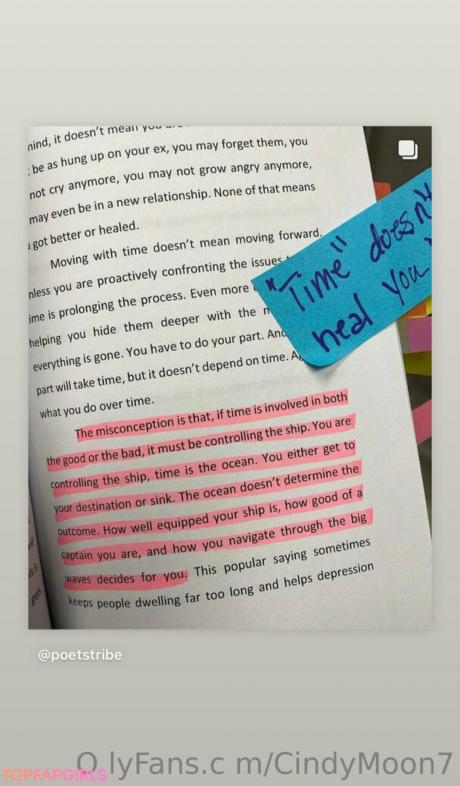 mind, it doesn't mean you
be as hung up on your ex, you may forget them, you
not cry anymore, you may not grow angry anymore,
may even be in a new relationship. None of that means
got better or healed.
Moving with time doesn't mean moving forward.
unless you are proactively confronting the issues
time is prolonging the process. Even more
helping you hide them deeper with the
everything is gone. You have to do your part. And
part will take time, but it doesn't depend on time.
what you do over time.
"Time" doesn't
heal you
The misconception is that, if time is involved in both
the good or the bad, it must be controlling the ship. You are
controlling the ship, time is the ocean. You either get to
your destination or sink. The ocean doesn't determine the
outcome. How well equipped your ship is, how good of a
captain you are, and how you navigate through the big
waves decides for you. This popular saying sometimes
keeps people dwelling far too long and helps depression
@poetstribe
O lyFans.c m/CindyMoon7
TOPFAPGIRLS